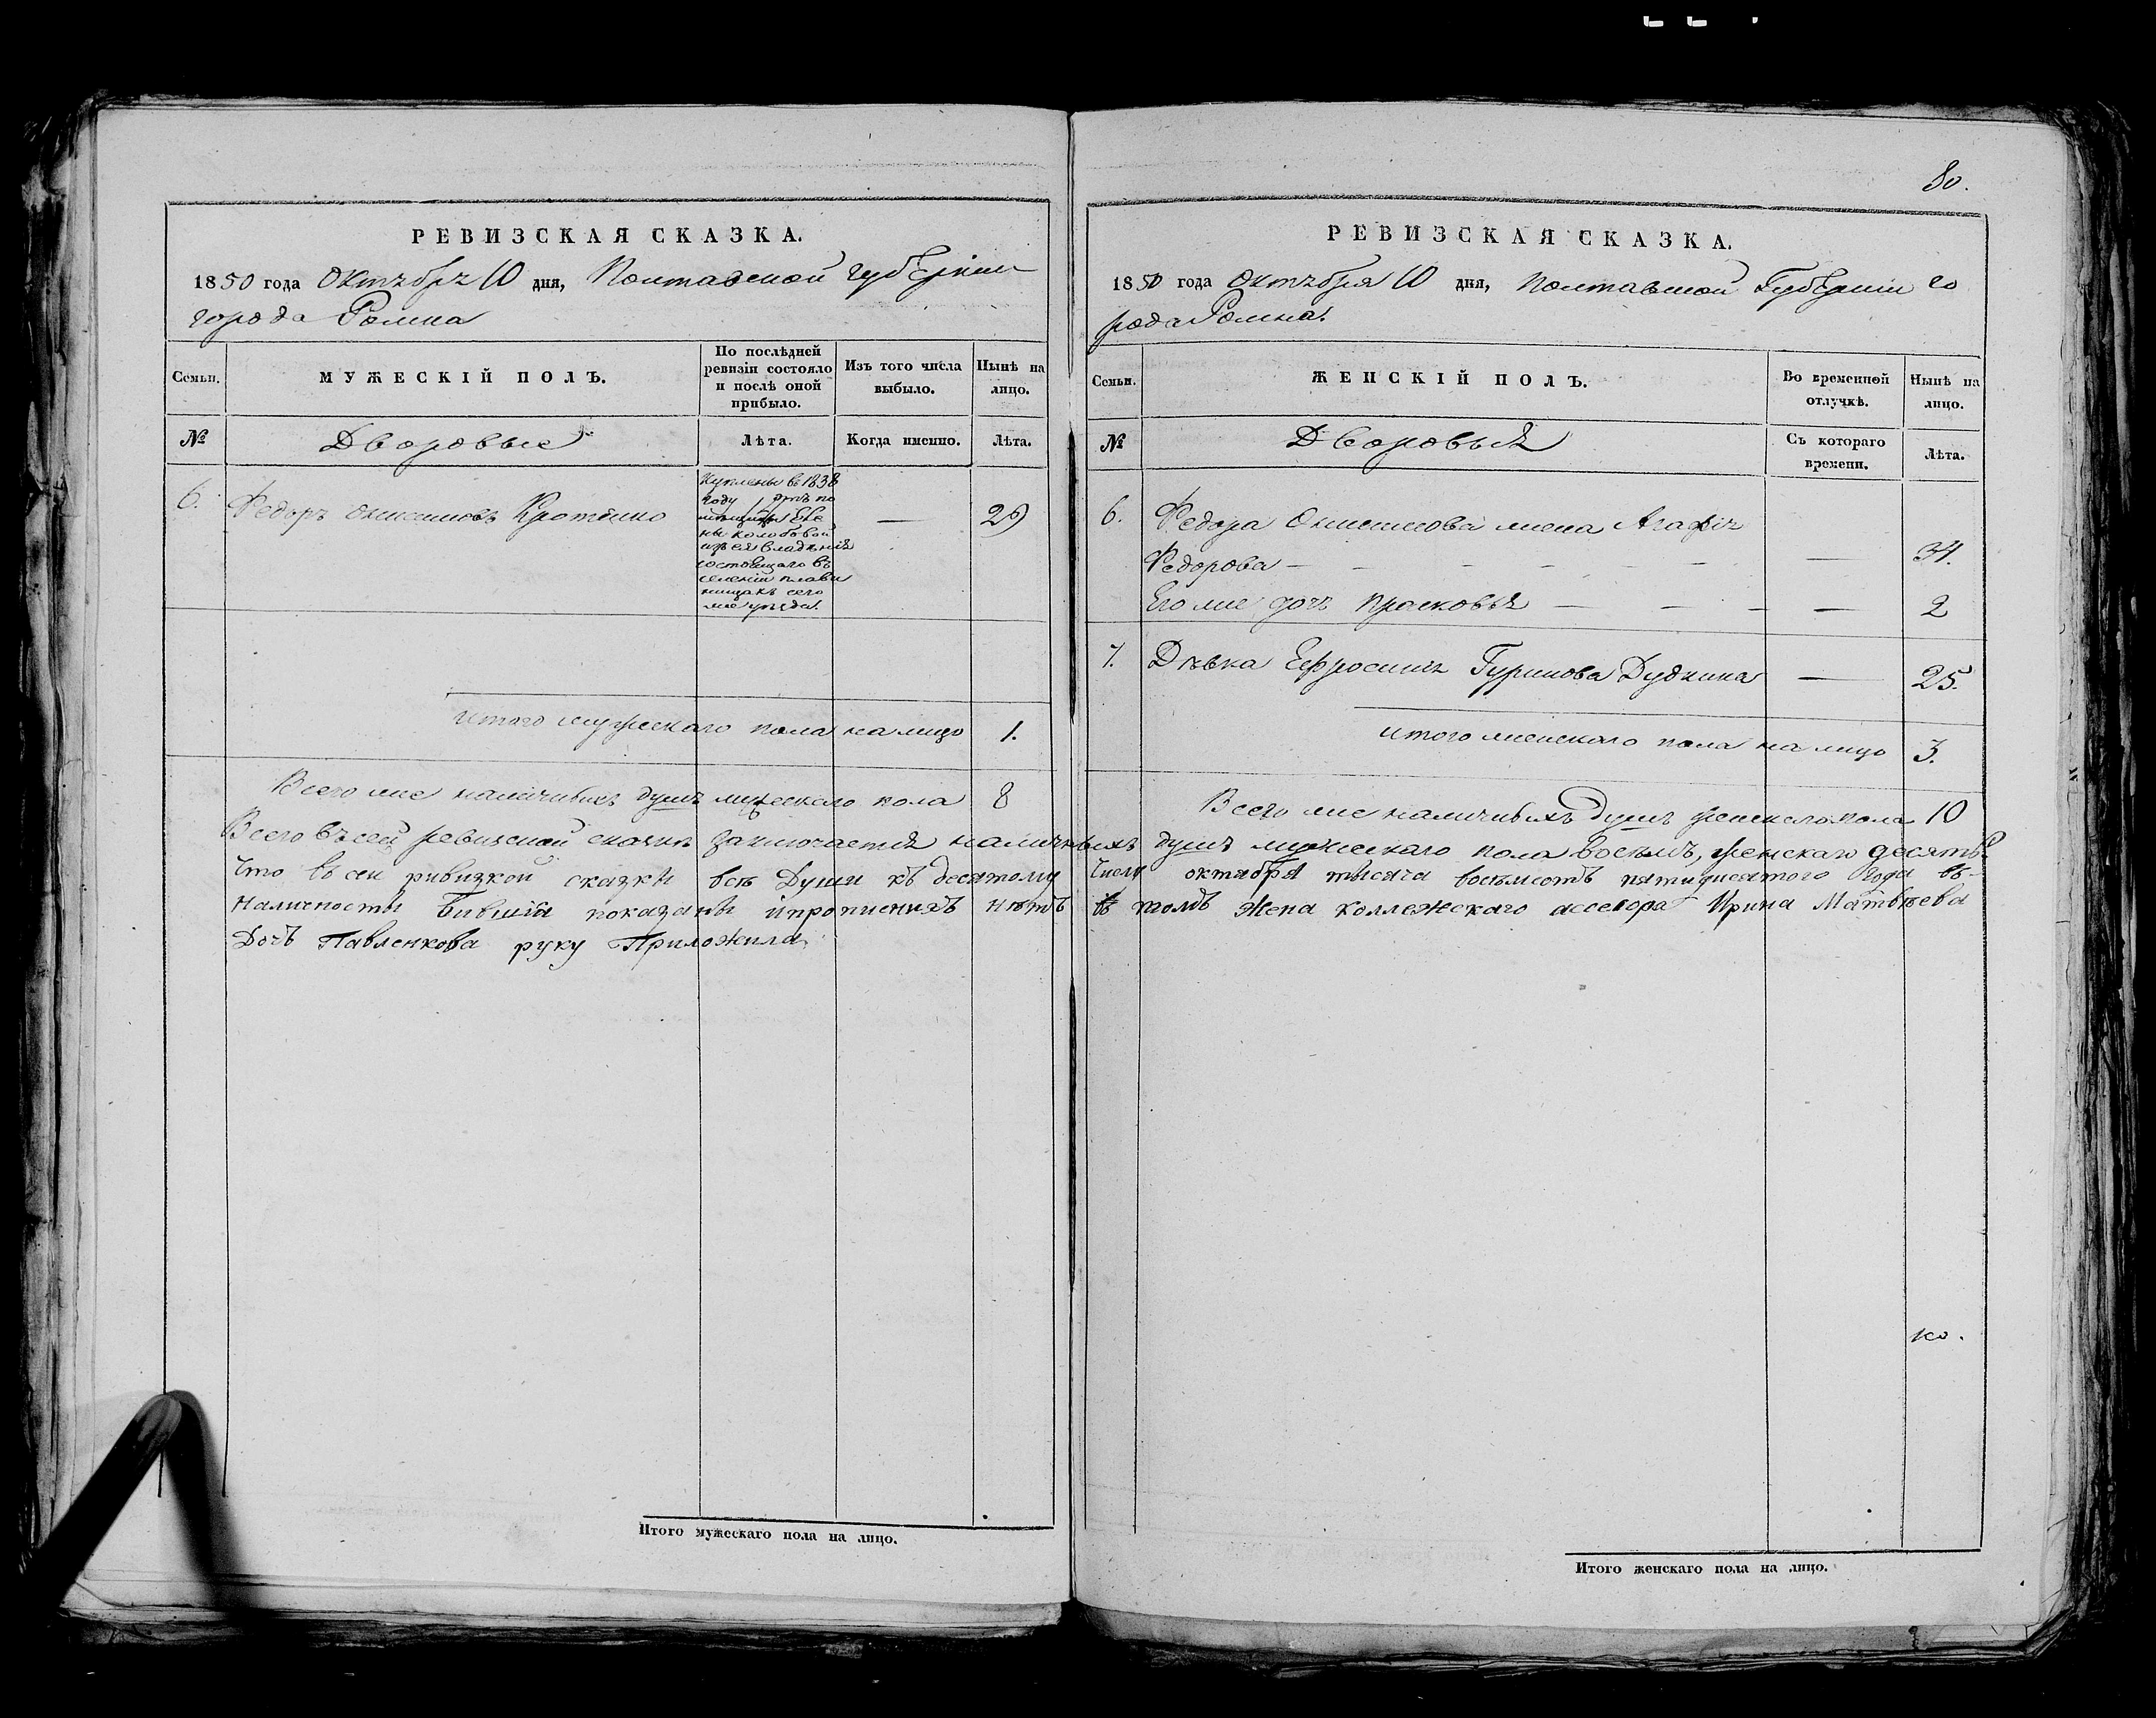 РЕВИЗСКАЯ СКАЗКА.
1850 года Октября 10 дня, Полтавской Губернии
города Ромна
Семьи.
МУЖЕСКІЙ ПОЛЪ.
По послѣдней
ревизіи состояло
и послѣ оной
прибыло.
Изъ того числа
выбыло.
Нынѣ на
лицо.
№
Дворовые
Лѣта.
Когда именно.
Лѣта.
6.
Федоръ Онисимовъ
Куплены въ 1838
году отъ по
мѣщицы Еле
ны Колобовой
изъ ея владѣнія
состоящаго въ
селеніи Плави
нищахъ сего
же уѣзда.
—
29
итого мужескаго пола на лицо 1.
Всего же наличныхъ душъ мужескаго пола 8
Всего въ сей ревизской сказкѣ заключается наличныхъ душъ мужескаго пола восемъ, женскаго десять.
Что в сеи ривизкой сказки всѣ Души къ десятому Числу октября тысяча восемсотъ пятидисятого Года въ
Наличносты бившіи показаны ипрописнихъ нѣтъ въ томъ Жена коллежского ассесора Ирина Матвѣева
Дочъ Павленкова руку Приложила
Итого мужескаго пола на лицо.
80.
РЕВИЗСКАЯ СКАЗКА.
1850 года Октября 10 дня, Полтавской Губерніи го
рода Ромна.
Семьи.
ЖЕНСКІЙ ПОЛЪ.
Во временной
отлучкѣ.
Нынѣ на
лицо.
№
Дворовыя
Съ котораго
времени.
Лѣта.
6. Федора Онисимова жена Агафія
Федорова — — — — — — — 34.
Его же дочь Прасковья — — — — 2
7. Дѣвка Ефросинія Гуринова Дудкина — 25.
итого женскаго пола на лицо 3.
Всего же наличныхъ душъ женскаго пола 10
ко.
Итого женскаго пола на лицо.